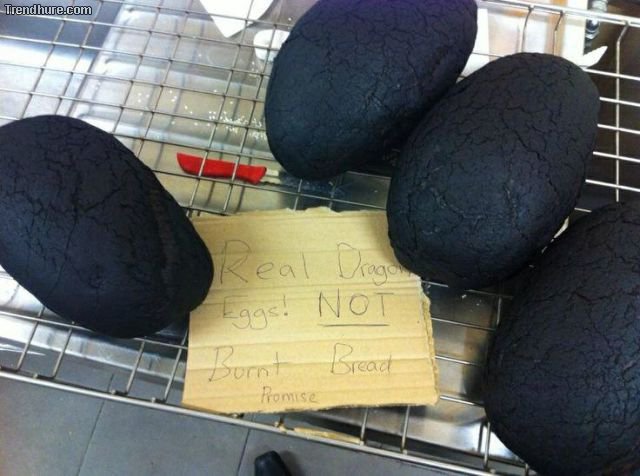 Trendhure.com
Real Dragon
Eggs! NOT
Burnt Bread
Promise